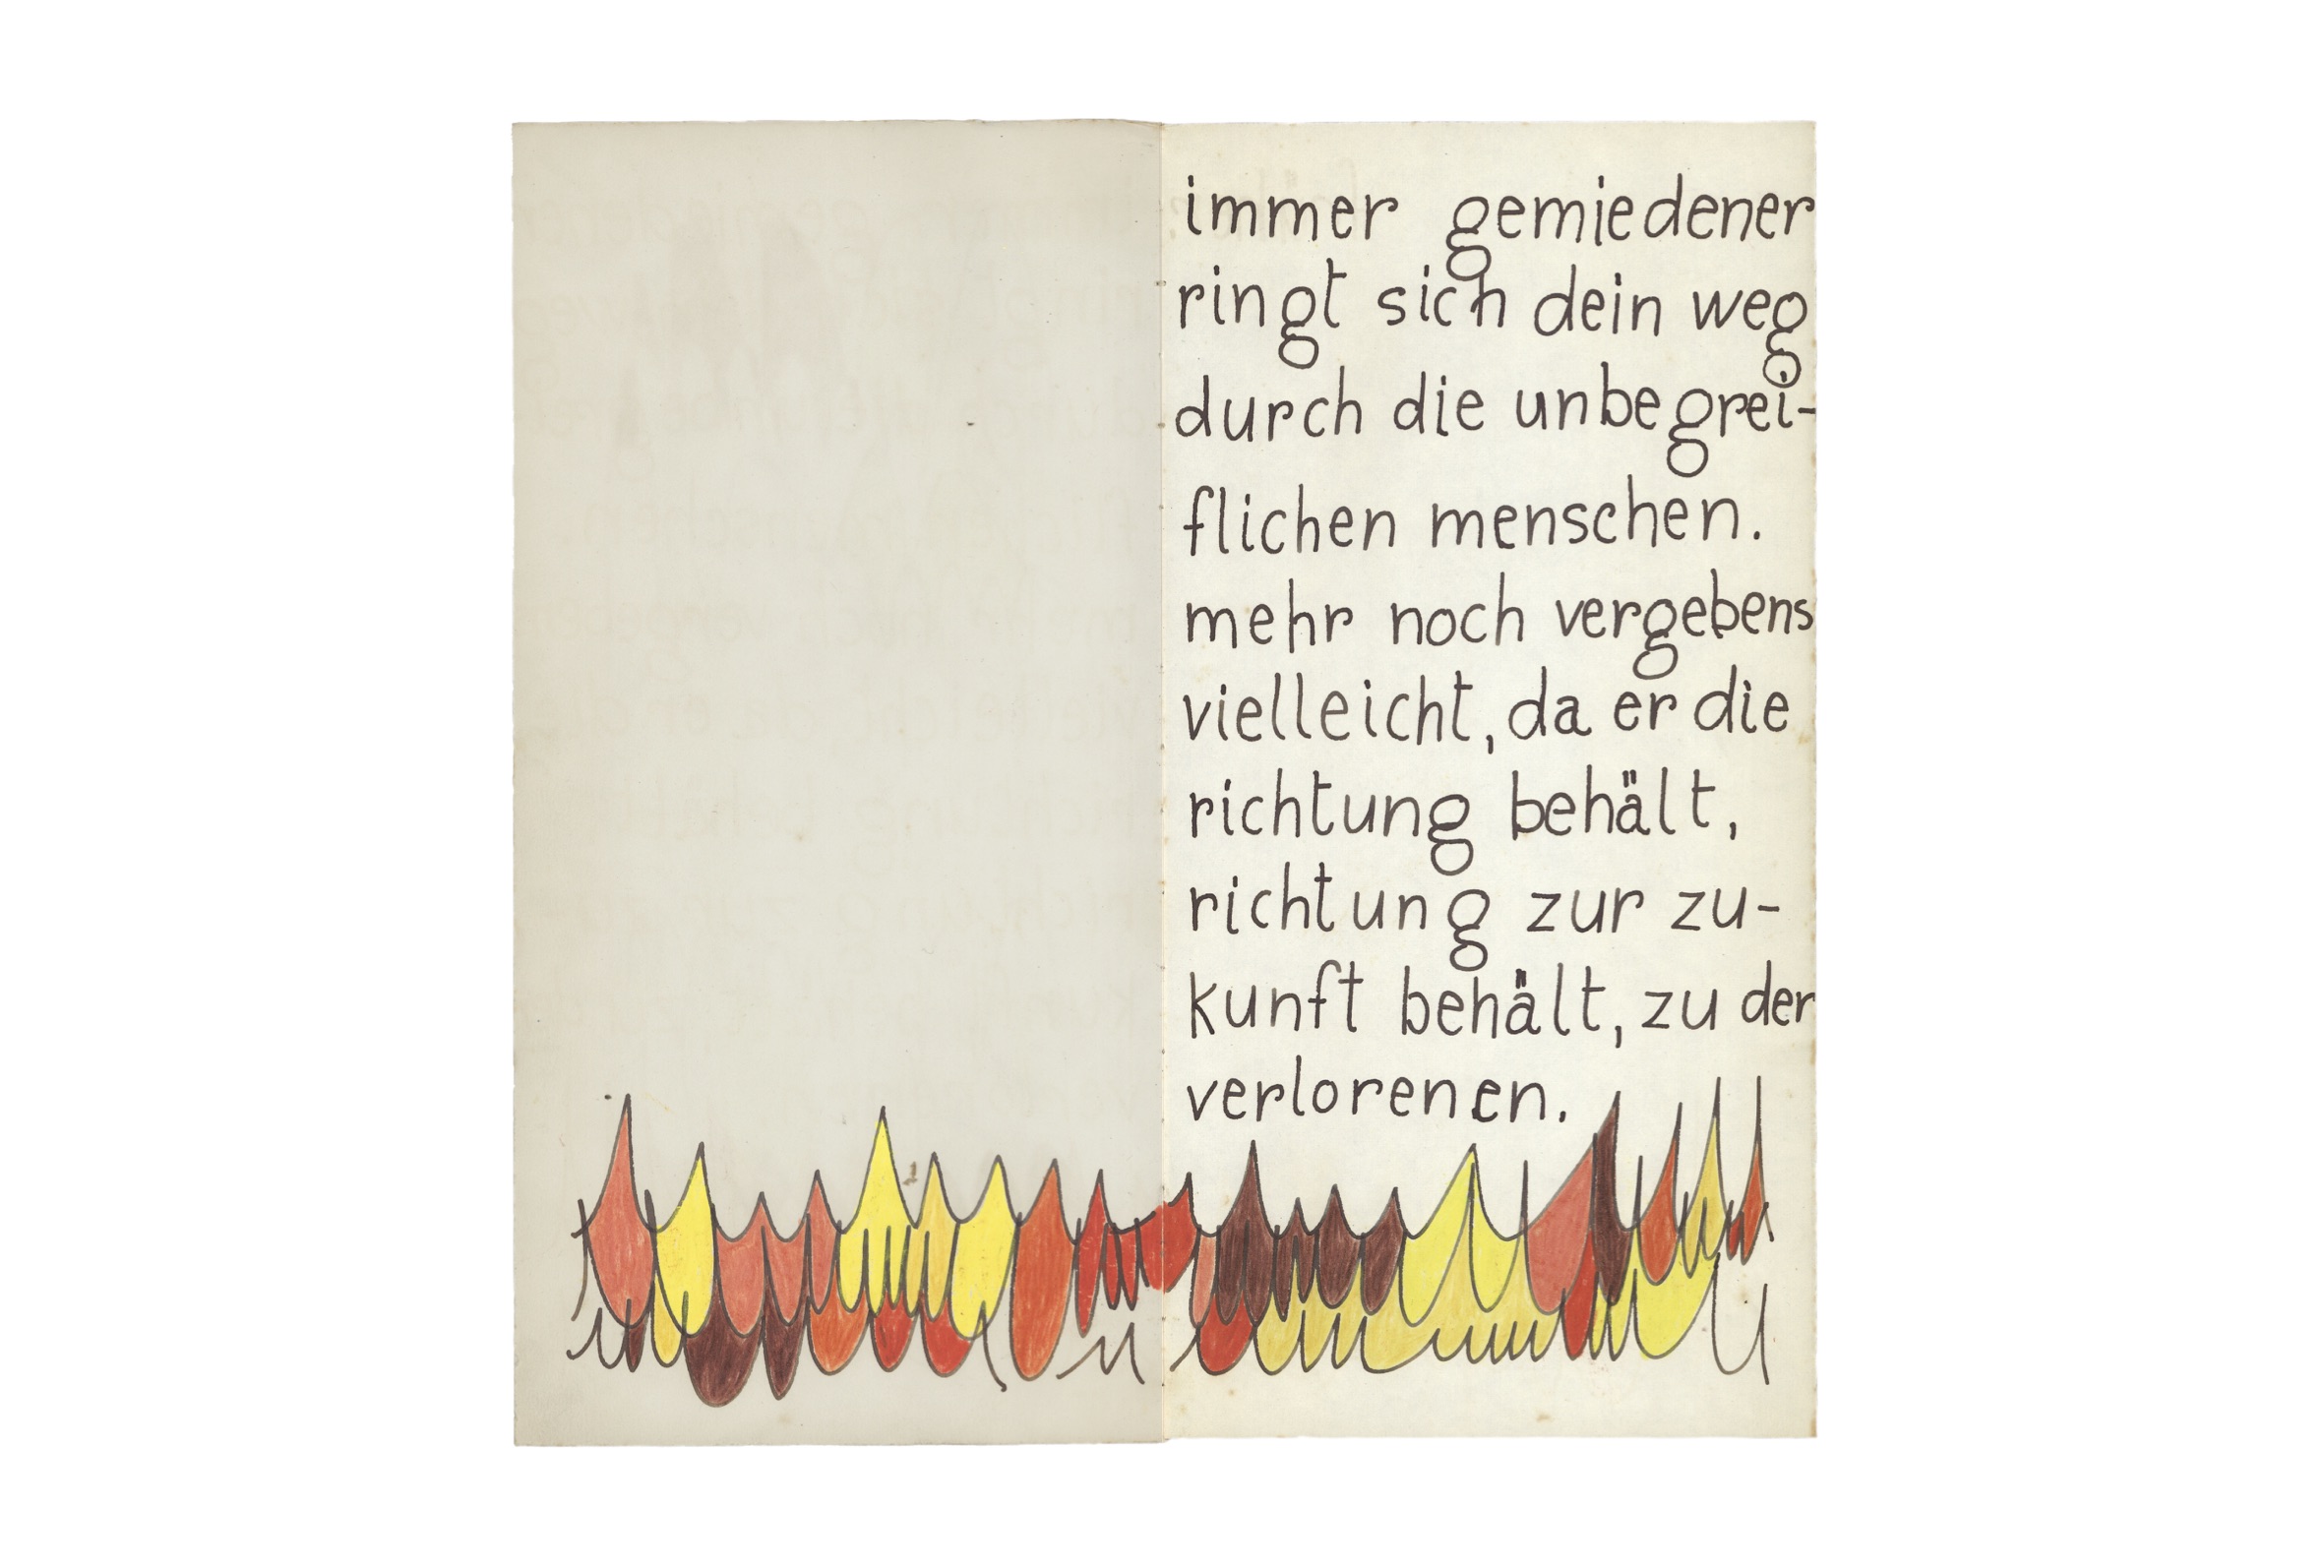 immer gemiedener
ringt sich dein weg
durch die unbegrei-
flichen menschen.
mehr noch vergebens
vielleicht, da er die
richtung behält,
richtung zur zu-
kunft behält, zu der
verlorenen.